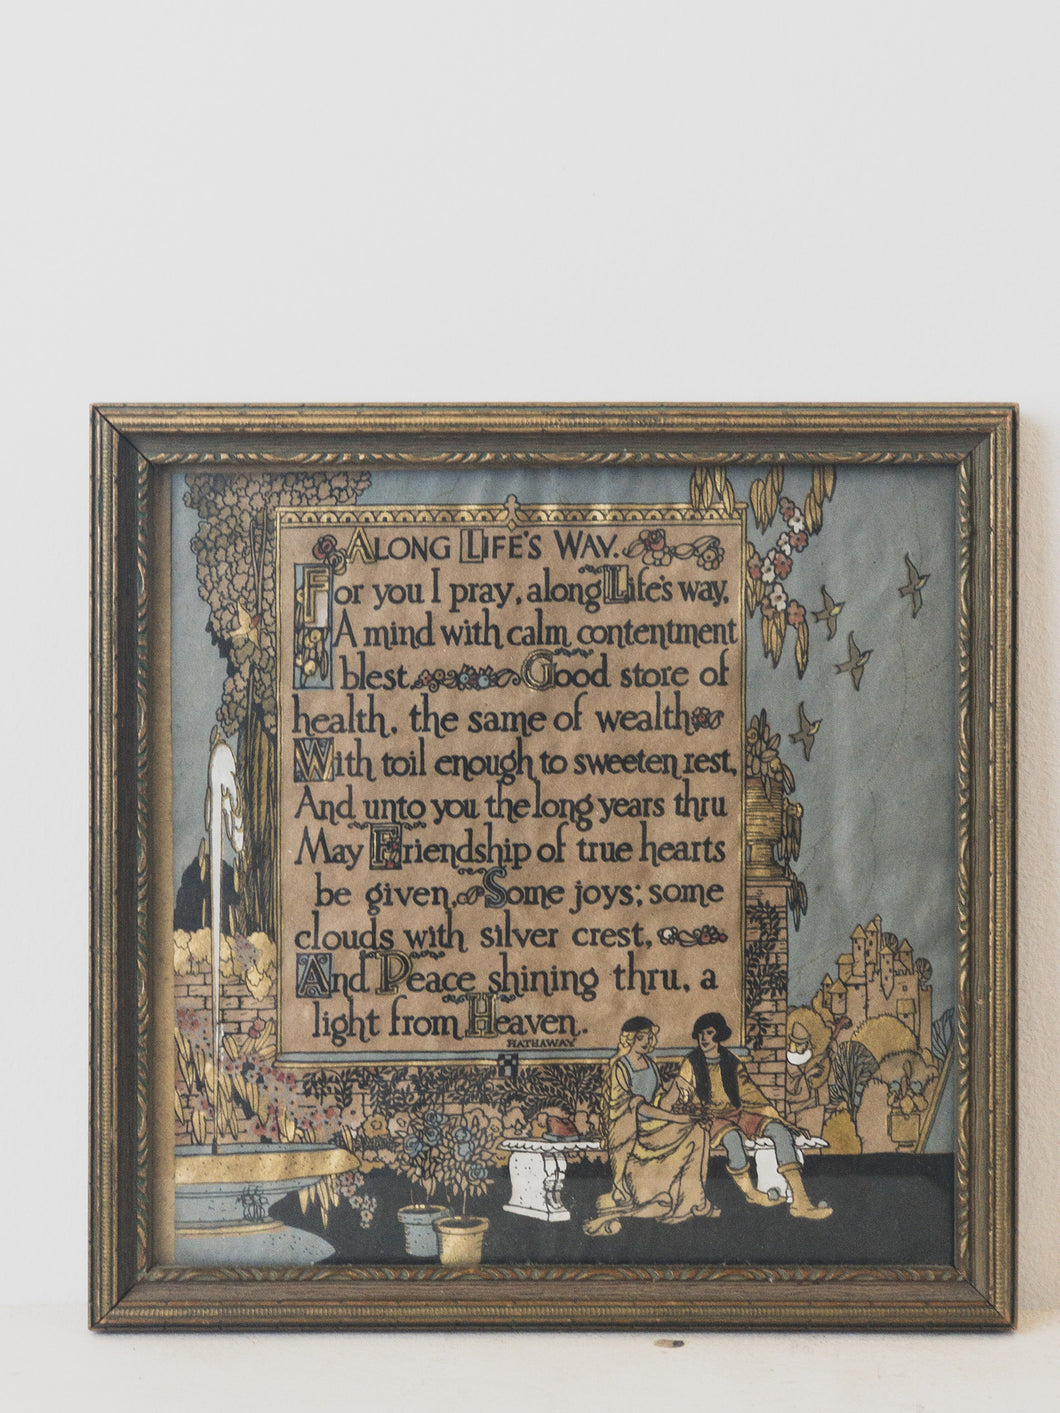 ALONG LIFE'S WAY.
For you I pray, along Life's way,
A mind with calm contentment
blest. Good store of
health, the same of wealth
With toil enough to sweeten rest,
And unto you the long years thru
May Friendship of true hearts
be given. Some joys; some
clouds with silver crest,
And Peace shining thru, a
light from Heaven.
HATHAWAY